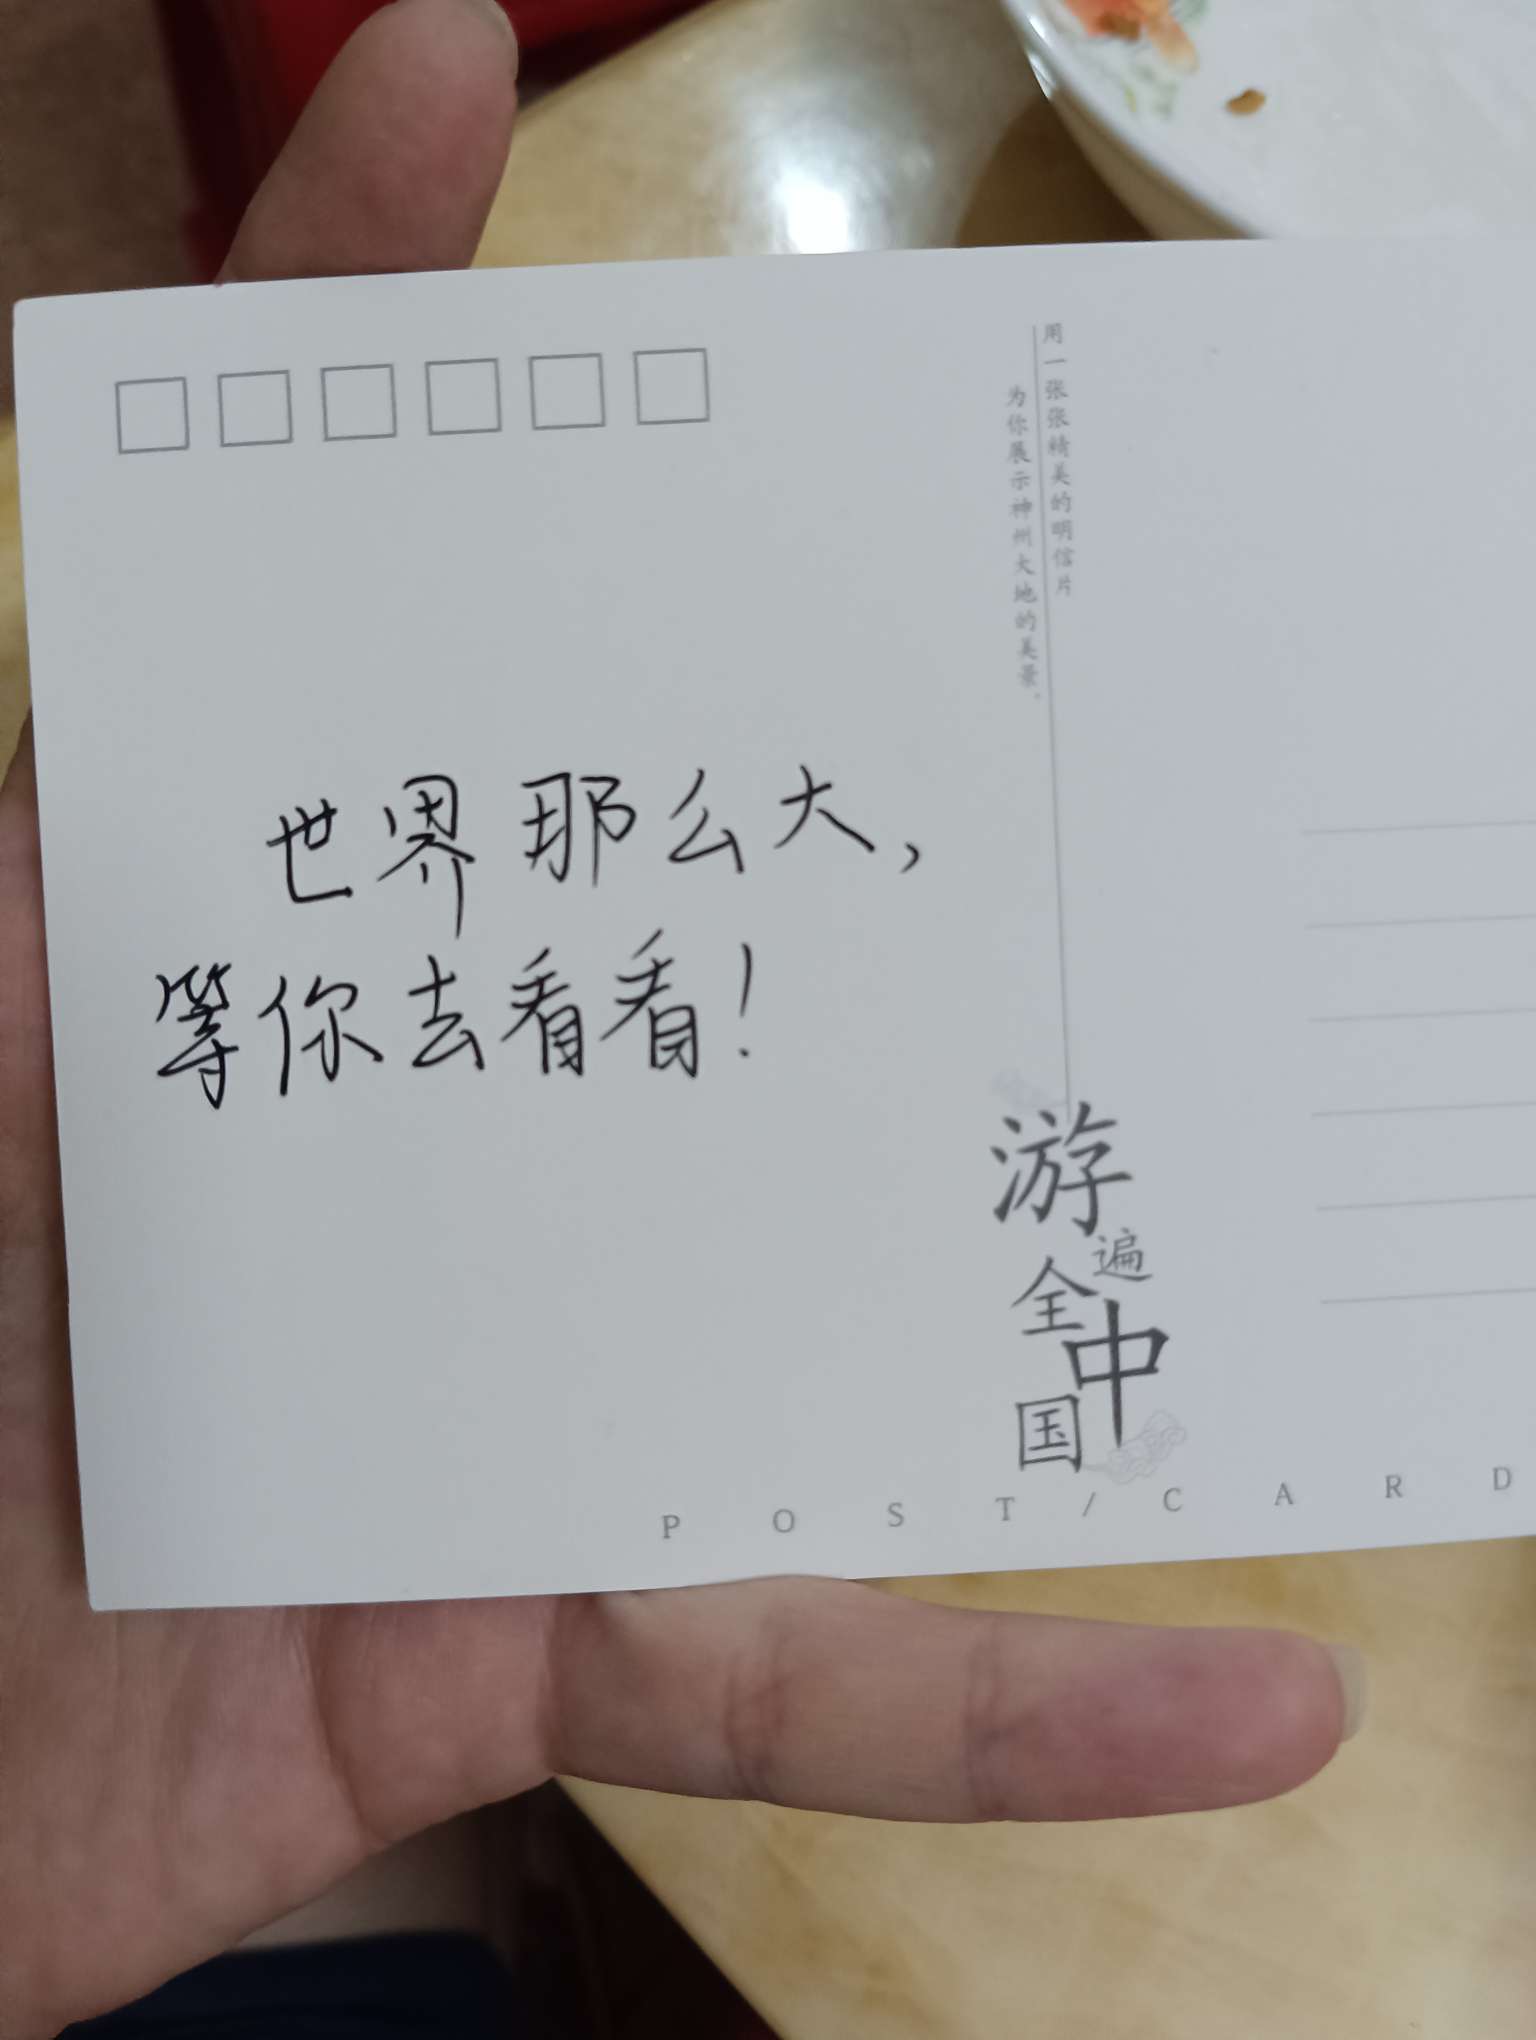 用一张张精美的明信片
为你展示神州大地的美景.
世界那么大,
等你去看看!
游
遍
全
中
国
POST/CARD